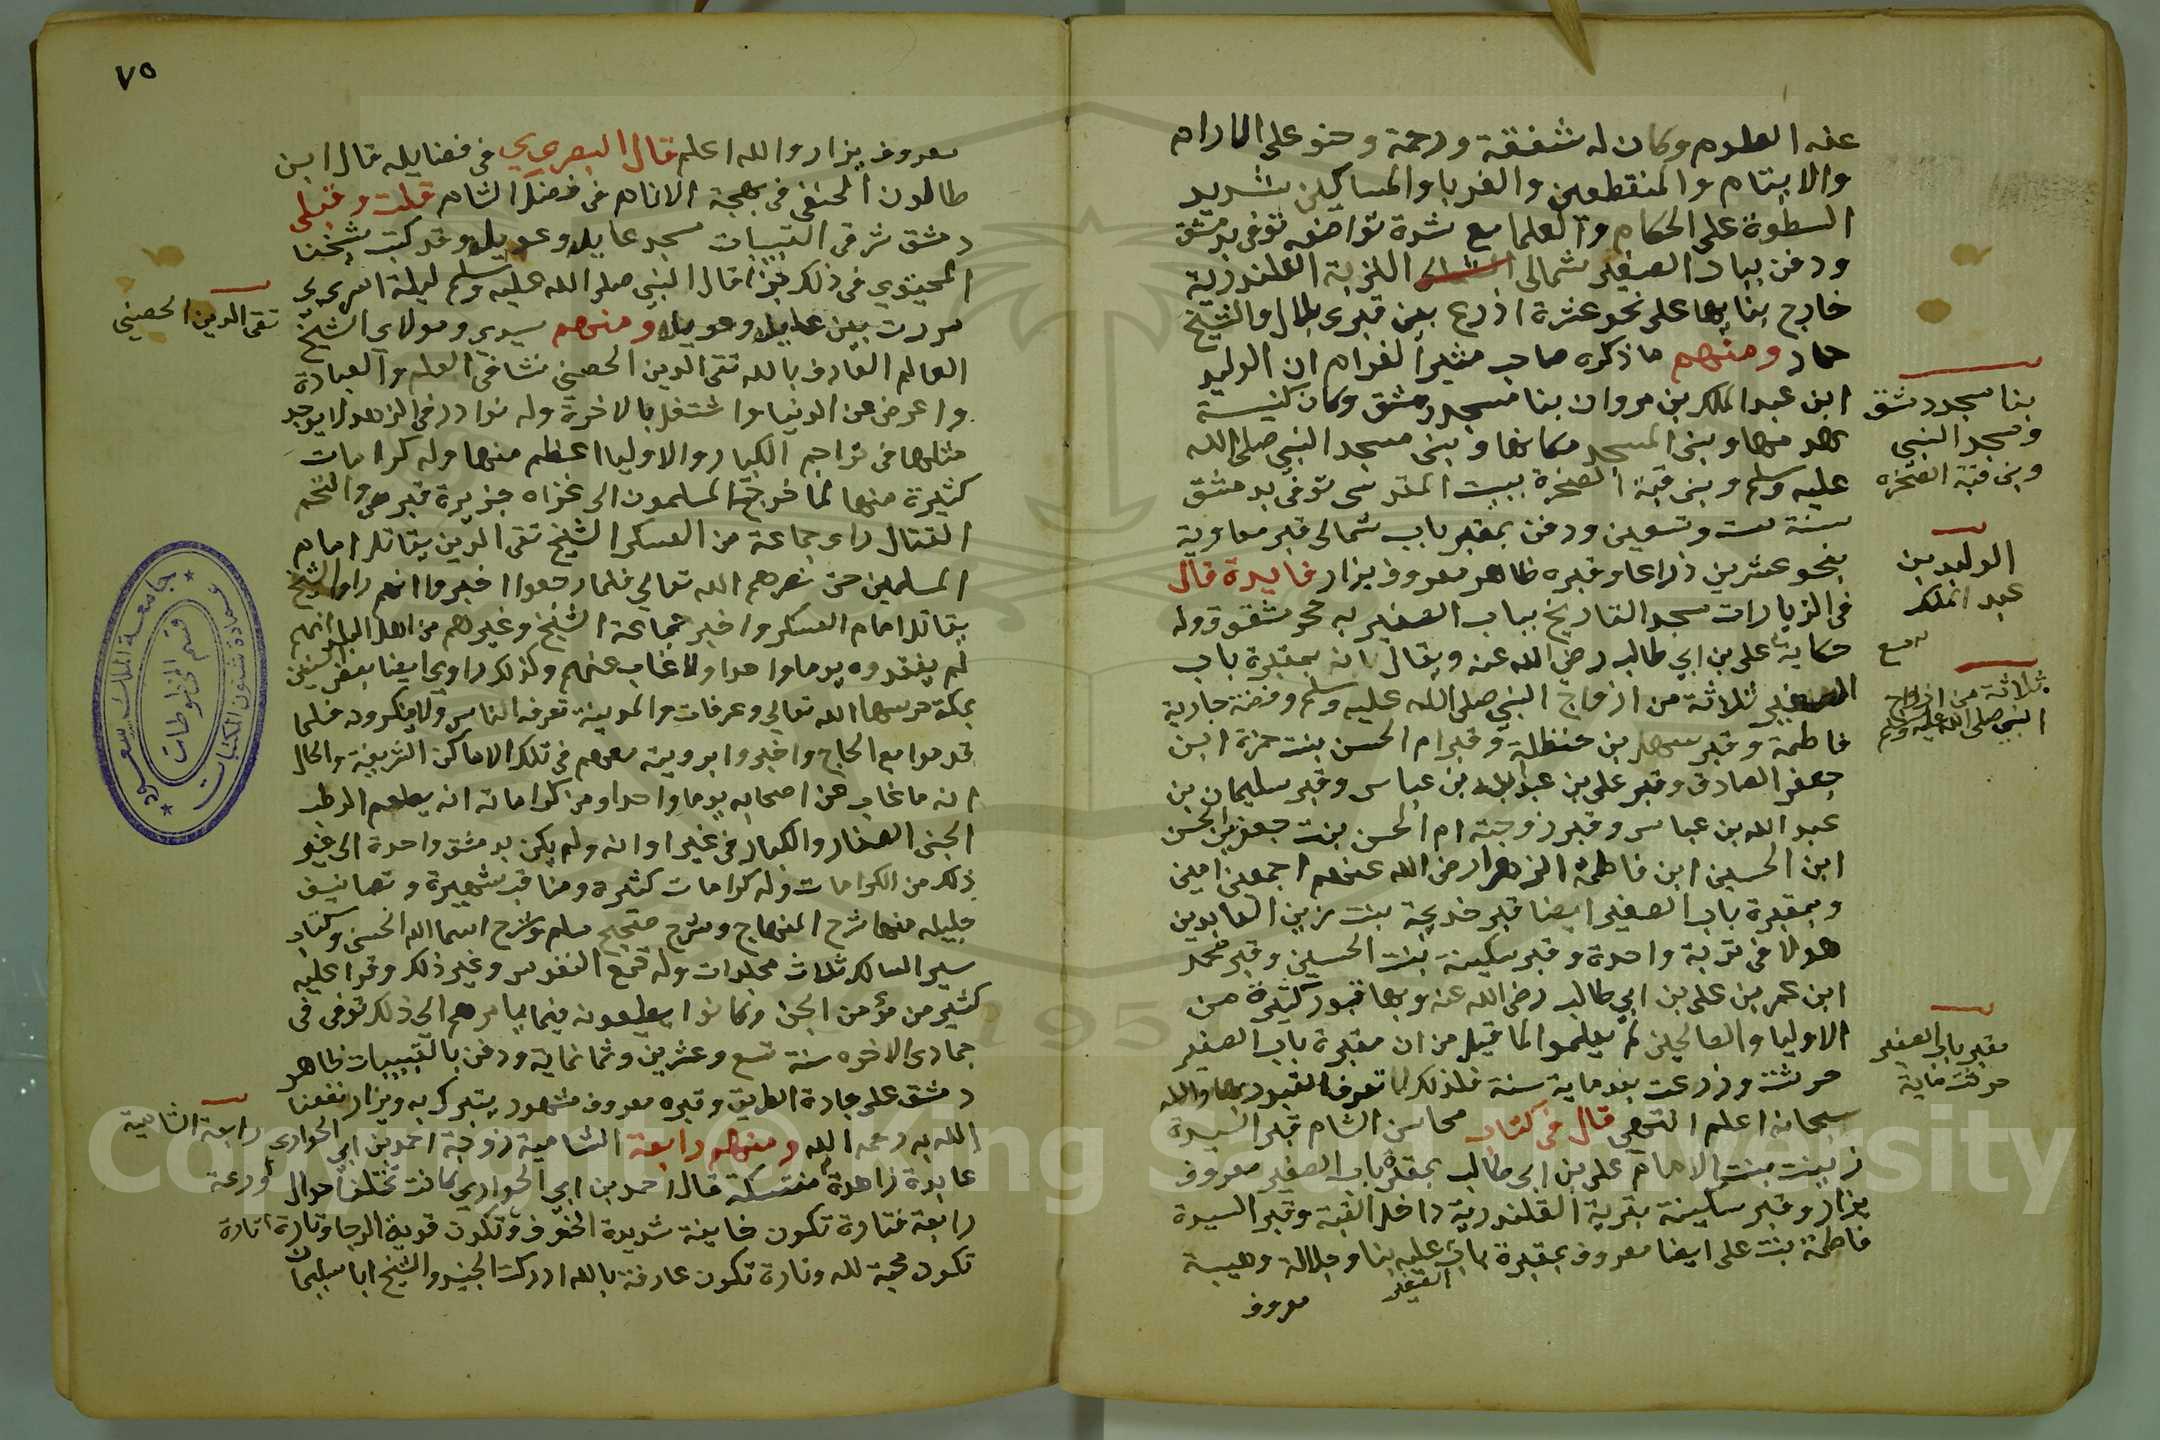 عنه العلوم وكان له شفقة ورحمة وحنو على الارامل
والايتام والمنقطعين والغربا والمساكين شديد
السطوة على الحكام والعلما مع شدة تواضعه توفى بدمشق
ودفن بباب الصغير شمالى التربة القلندرية
خارج بنايها على نحو عشرة اذرع بين قبرى بلال والشيخ
حماد ومنهم ما ذكره صاحب مثير الغرام ان الوليد
ابن عبد الملك بن مروان بنا مسجد دمشق وكان كنيسة
فهدمها وبنى المسجد مكانها وبنى مسجد النبى صلى الله
عليه وسلم وبنى قبة الصخرة ببيت المقدس توفى بدمشق
سنة ست وتسعين ودفن بمقبرة باب شمالى قبر معاوية
بنحو عشرين ذراعا وقبره ظاهر معروف يزار فايدة قال
فى الزيارات مسجد التاريخ بباب الصغير به حجر مشقوق وله
حكاية مع على بن ابى طالب رضى الله عنه ويقال بان بمقبرة باب
الصغير ثلاثة من ازواج النبى صلى الله عليه وسلم وفضة جارية
فاطمة وقبر سهل بن حنظلة وقبر ام الحسن بنت حمزة ابن
جعفر الصادق وقبر على بن عبد الله بن عباس وقبر سليمان بن
عبد الله بن عباس وقبر زوجته ام الحسن بنت جعفر بن الحسن
ابن الحسين ابن فاطمة الزهرا رضى الله عنهم اجمعين امين
وبمقبرة باب الصغير ايضا قبر خديجة بنت زين العابدين
هولا فى تربة واحدة وقبر سكينة بنت الحسين وقبر محمد
ابن عمر بن على بن ابى طالب رضى الله عنه وبها قبور كثيرة من
الاوليا والصالحين لم يعلموا لما قيل من ان مقبرة باب الصغير
حرثت وزرعت نحو ماية سنة فلذلك لا تعرف القبور بها والله
سبحانه اعلم انتهى قال فى كتاب محاسن الشام قبر السيدة
زينب بنت الامام على بن ابى طالب بمقبرة باب الصغير معروف
يزار وقبر سكينة بتربة القلندرية داخل القبة وقبر السيدة
فاطمة بنت على ايضا معروف بمقبرة باب الصغير عليه بنا وجلالة وهيبة
معروف
بنا مسجد دمشق
ومسجد النبى
وبنى قبة الصخره
الوليد بن
عبد الملك
ثلاثة من ازواج
النبى صلى الله عليه وسلم
مقبر باب الصغير
حرثت ماية
٧٥
معروف يزار والله اعلم قال البصروى فى فضايله قال ابن
طالون الحنفى فى بهجة الانام فى فضل الشام قلت وقبلى
دمشق شرقى القبيبات مسجد عايل وعويل وقد كتب شيخنا
المحيوى فى ذلك جزا قال النبى صلى الله عليه وسلم ليلة اسرى بى
مررت بين عايل وعويل ومنهم سيدى ومولاى الشيخ
العالم العارف بالله تقى الدين الحصنى نشا فى العلم والعبادة
واعرض عن الدنيا واشتغل بالاخرة وله نوادر فى الزهد لا يوجد
مثلها فى تراجم الكبار والاوليا اعظم منها وله كرامات
كثيرة منها لما خرج المسلمون الى غزاه جزيرة قبرص والتحم
القتال راى جماعة من العسكر الشيخ تقى الدين يقاتل امام
المسلمين حتى نصرهم الله تعالى فلما رجعوا اخبروا انهم راوا الشيخ
يقاتل امام العسكر واخبر جماعة الشيخ وغيرهم من اهل البلد انهم
لم يفقدوه يوما واحدا ولا غاب عنهم وكذلك راوى ايضا بعض السنين
بمكة حرسها الله تعالى وعرفات والمدينة تعرفه الناس ولا ينكرونه فلما
قدموا مع الحاج واخبروا برويته معهم فى تلك الاماكن الشريفة والحال
انه ما غاب عن اصحابه يوما واحدا ومن كراماته انه يطعم الرطب
الجنى الصغار والكبار فى غير اوانه ولم يكن بدمشق واحدة الى غير
ذلك من الكرامات وله كرامات كثيرة ومناقب شهيرة وتصانيف
جليله منها شرح المنهاج وشرح صحيح مسلم وشرح اسما الله الحسنى وكتاب
سير السالك ثلاث مجلدات وله قمع النفوس وغير ذلك وقرا عليه
كثير من مؤمن الجن وكانوا يطيعونه فيما يامرهم الى ذلك توفى فى
جمادى الاخره سنة تسع وعشرين وثمانماية ودفن بالقبيبات ظاهر
دمشق على جادة الطريق وقبره معروف مشهور يتبرك به ويزار نفعنا
الله به رحمه الله ومنهم رابعة الشامية زوجة احمد بن ابى الحوارى
عابدة زاهدة متنسكة قال احمد بن ابى الحوارى كانت تختلف احوال ورعة
رابعة فتارة تكون خايفة شديدة الخوف وتكون قوية الرجا وتارة
تكون محبة لله وتارة تكون عارفة بالله ادركت الجنيد والشيخ ابا سليمان
تقى الدين الحصنى
رابعة الشامية
جامعة الملك سعود
عمادة شئون المكتبات
قسم المخطوطات
Copyright © King Saud University
195